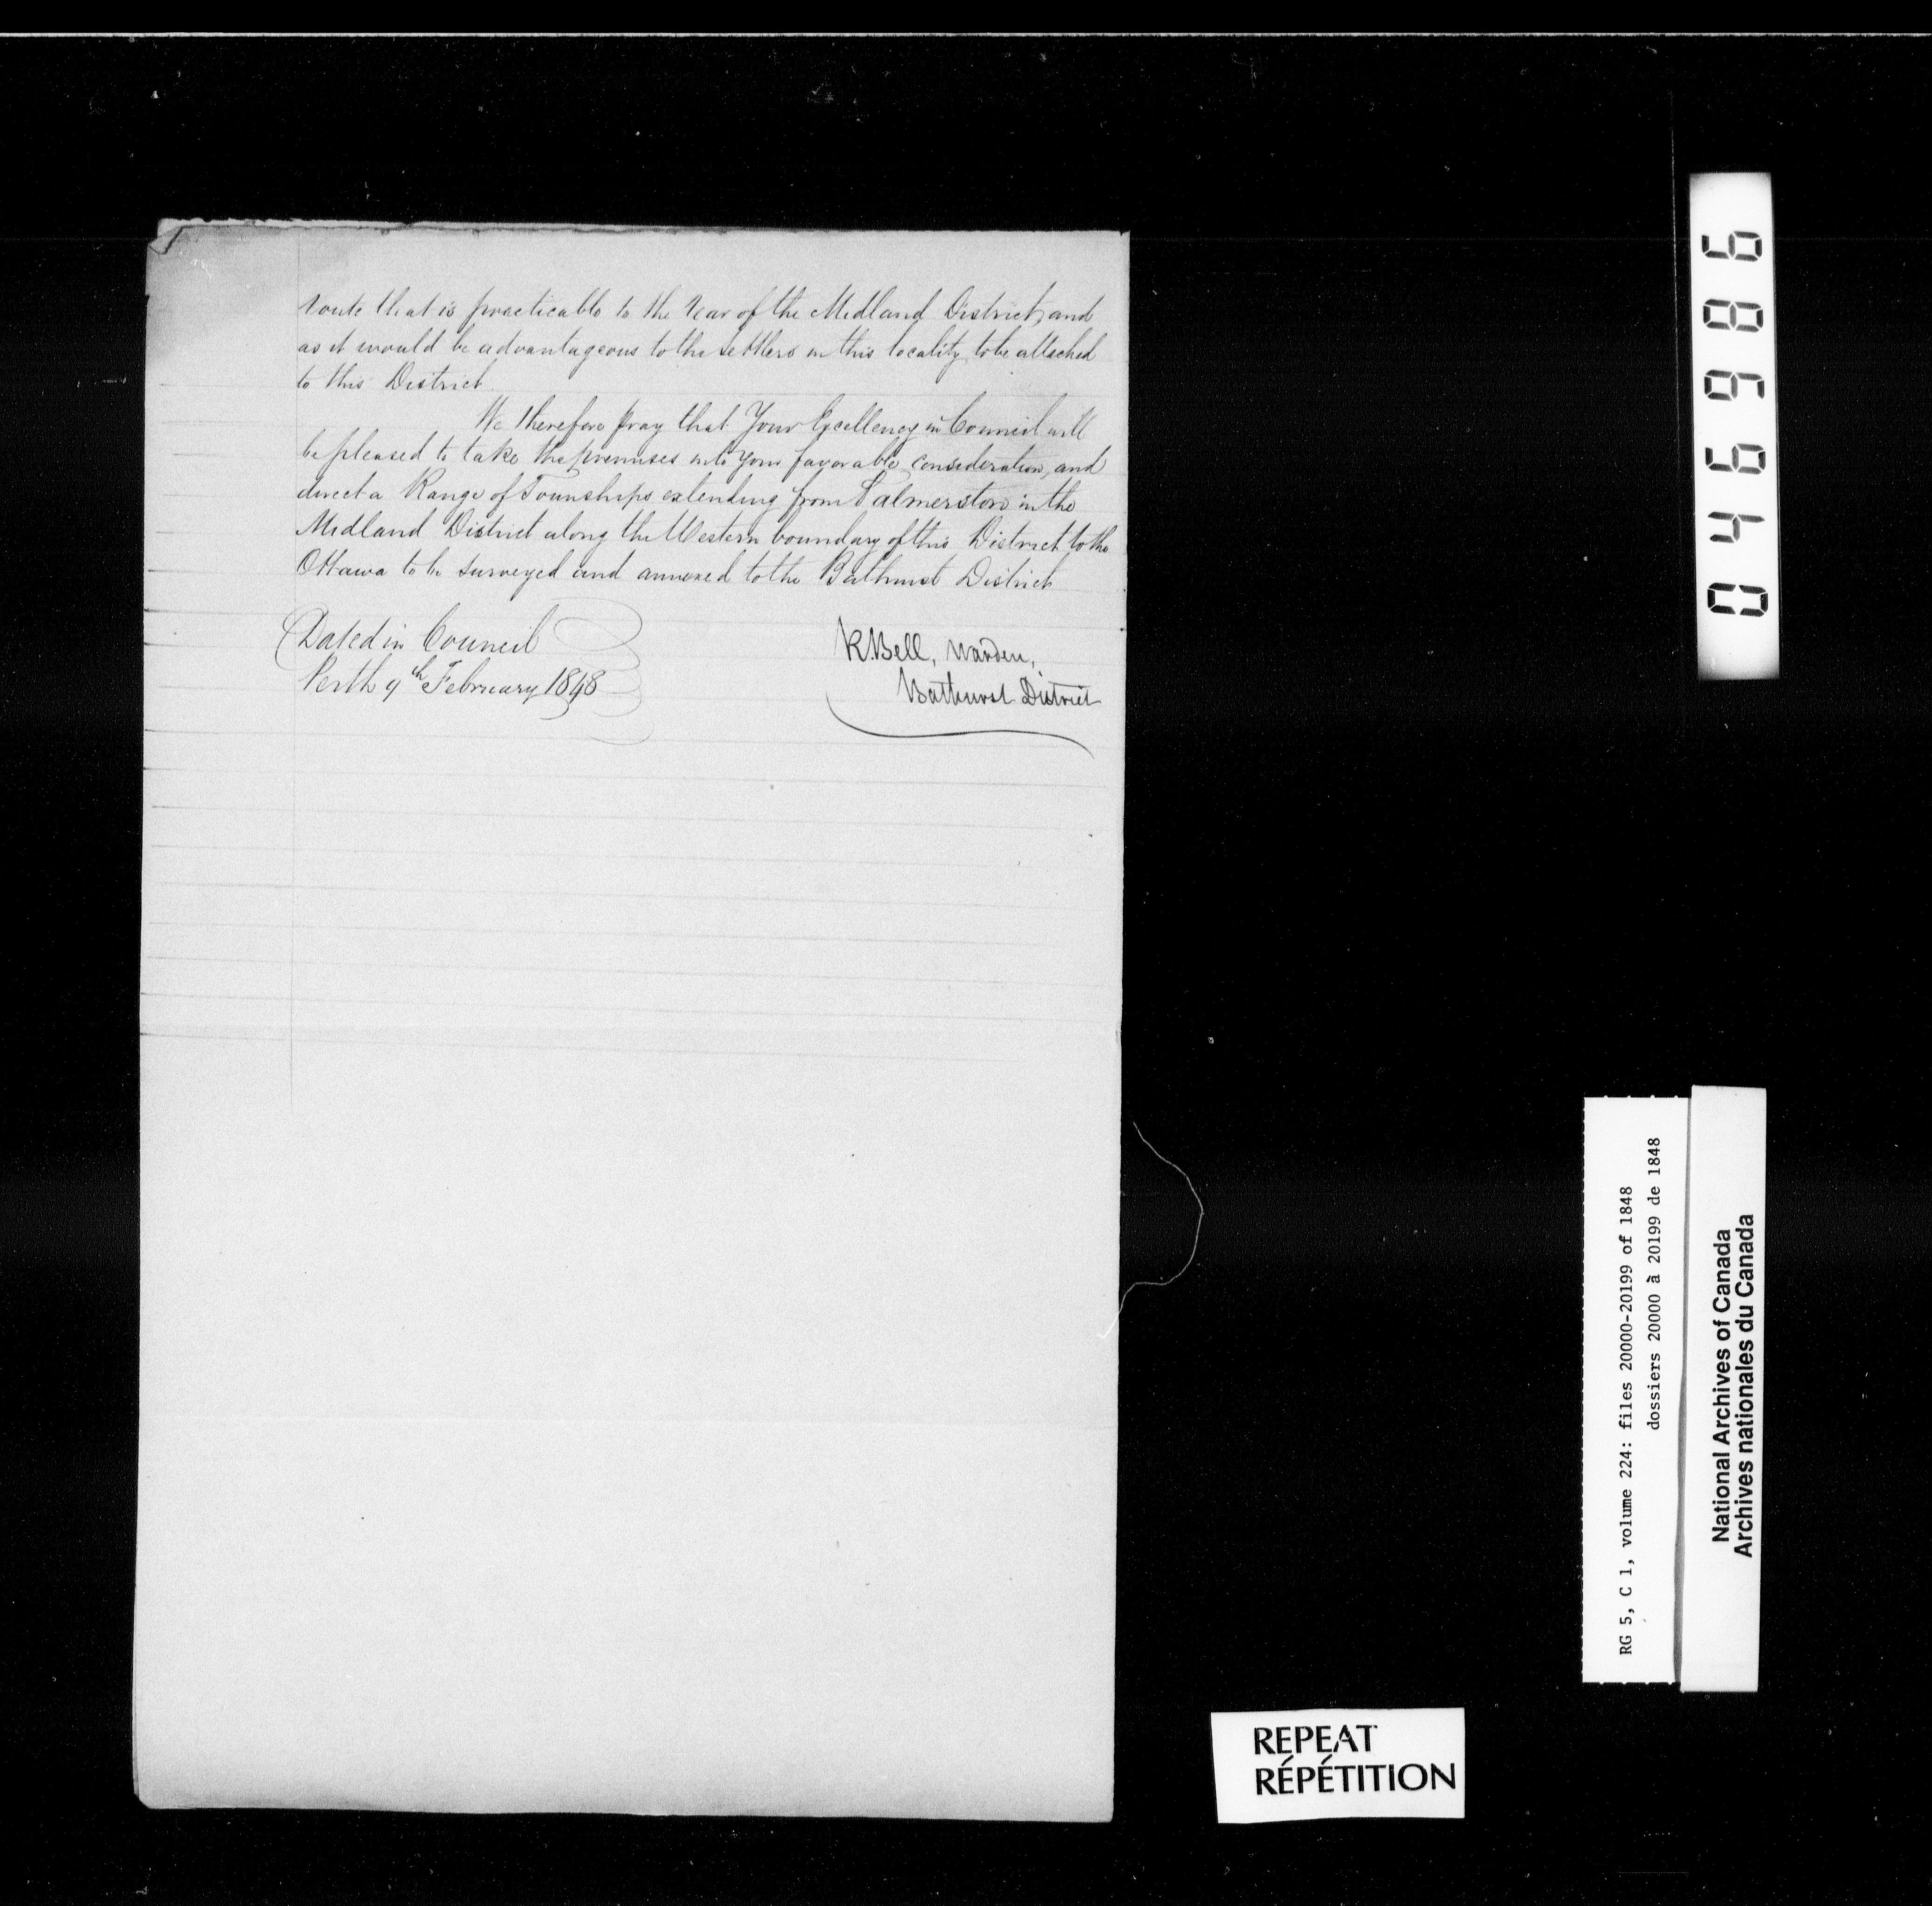 route that is practicable to the rear of the Midland District, and
as it would be advantageous to the settlers in this locality to be attached
to this District
We therefore pray that Your Excellency in Council will
be pleased to take the premises into your favorable consideration, and
direct a Range of Townships extending from Palmerston in the
Midland District along the Western boundary of this District to the
Ottawa to be surveyed and annexed to the Bathurst District
Dated in Council
Perth 9th February 1848
R Bell, Warden,
Bathurst District
046986
RG 5, C 1, volume 224: files 20000-20199 of 1848
dossiers 20000 à 20199 de 1848
National Archives of Canada
Archives nationales du Canada
REPEAT
RÉPÉTITION